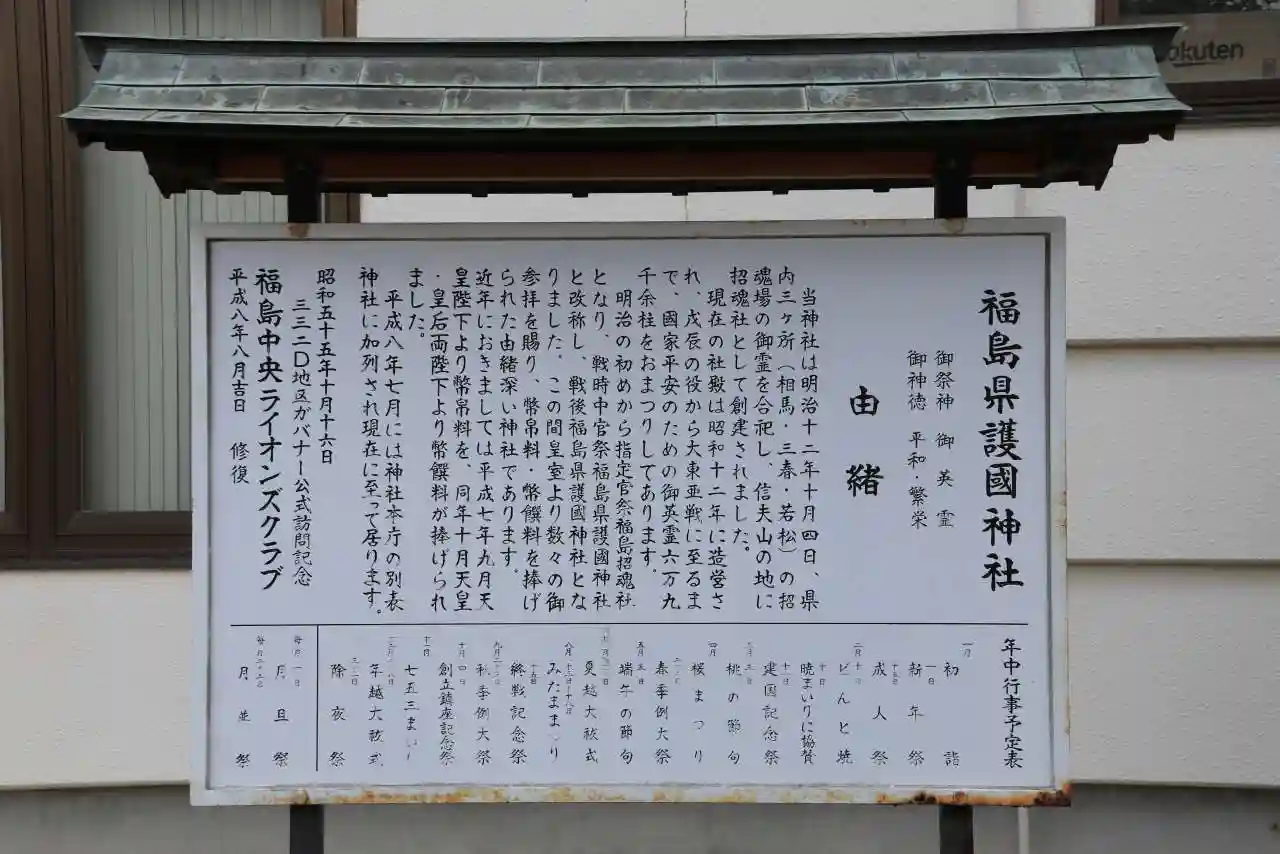 福島県護國神社
御祭神 御英霊
御神徳 平和・繁栄
由緒
当神社は明治十二年十月四日、県
内三ヶ所（相馬・三春・若松）の招
魂場の御霊を合祀し、信夫山の地に
招魂社として創建されました。
現在の社殿は昭和十二年に造営さ
れ、戊辰の役から大東亜戦に至るま
で、國家平安のための御英霊六万九
千余柱をおまつりしてあります。
明治の初めから指定官祭福島招魂社
となり、戦時中官祭福島県護國神社
と改称し、戦後福島県護國神社とな
りました。この間皇室より数々の御
参拝を賜り、幣帛料・幣饌料を捧げ
られた由緒深い神社であります。
近年におきましては平成七年九月天
皇陛下より幣帛料を、同年十月天皇
・皇后両陛下より幣饌料が捧げられ
ました。
平成八年七月には神社本庁の別表
神社に加列され現在に至って居ります。
昭和五十五年十月十六日
三三二D地区ガバナー公式訪問記念
福島中央ライオンズクラブ
平成八年八月吉日 修復
年中行事予定表
一月
初詣
一日
新年祭
十五日
成人祭
二月
どんと焼
十日
暁まいりに協賛
十一日
建国記念祭
桃の節句
四月
桜まつり
春季例大祭
五月五日
端午の節句
夏越大祓式
八月
みたままつり
十五日
終戦記念祭
九月
秋季例大祭
十月四日
創立鎮座記念祭
十一月
七五三まいり
年越大祓式
除夜祭
毎月一日
月旦祭
月並祭
okuten